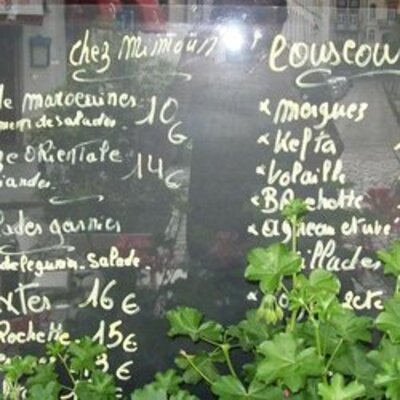 chez mimoun
de marocaines 10 €
de salades
ORientale 14 €
iandes
lades garnies
de legumes - Salade
xtes - 16 €
Rochette - 15 €
13 €
Couscou
* merguez
* Kefta
* Volaille
* BRochette
* agneau
illades